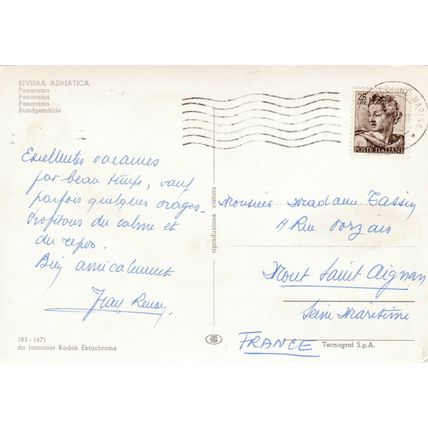 RIVIERA ADRIATICA
Panorama
Panorama
Panorama
Rundgemälde
Excellentes vacances
par beau temps, sauf
parfois quelques orages.
Profitons du calme et
du repos.
Bien amicalement
25
POSTE ITALIANE
riproduzione vietata
Monsieur Madame Tassin
Rue
Mont Saint Aignan
Seine Maritime
FRANCE
183 - 1471
da fotocolor Kodak Ektachrome
Tecnograf S.p.A.